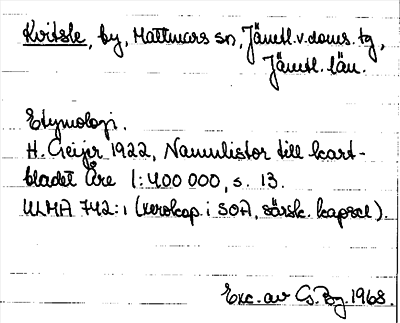 Kvitsle, by, Mattmars sn, Jämtl. v. doms. tg,
Jämtl. län.
Etymologi.
H. Geijer 1922, Namnlistor till kart-
bladet Åre 1:400 000, s. 13.
ULMA 742:1 (xerokop. i SOA, särsk. kapsel).
Exc. av G. Bg. 1968.